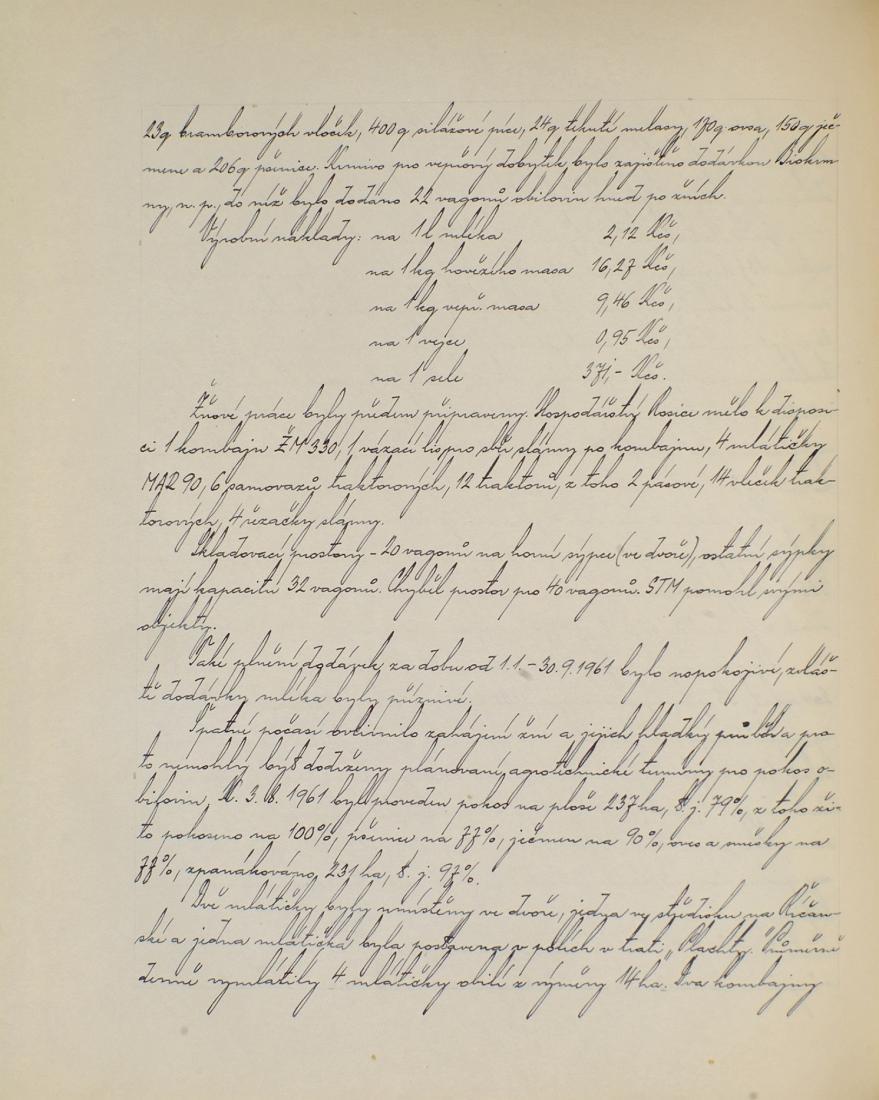 23g bramborových vloček, 400g silážové píce, 24g tekuté melasy, 170g ovsa, 150g ječ-
mene a 206g pšenice. Krmivo pro vepřový dobytek bylo zajištěno dodávkou Biokrm
ny, n. p., do níž bylo dodáno 22 vagonů obilovin hned po žních.
Výrobní náklady: na 1 l mléka 2,12 Kčs,
na 1 kg hovězího masa 16,27 Kčs,
na 1 kg vepř. masa 9,46 Kčs,
na 1 vejce 0,95 Kčs,
na 1 sele 371,- Kčs.
Žňové práce byly předem připraveny. Hospodářství Rosice mělo k disposi-
ci 1 kombajn ŽM 330, 1 vázací lis pro sběr slámy po kombajnu, 4 mlátičky
MAR 90, 6 samovazů traktorových, 12 traktorů, z toho 2 pásové, 14 vleček trak-
torových, 4 řezačky slámy.
Skladovací prostory - 20 vagonů na horní sýpce (ve dvoře), ostatní sýpky
mají kapacitu 32 vagonů. Chyběl prostor pro 40 vagonů. STM pomohl svými
objekty.
Také plnění dodávek za dobu od 1.1. - 30.9.1961 bylo uspokojivé, zvláš-
tě dodávky mléka byly příznivé.
Špatné počasí ovlivnilo zahájení žní a jejich hladký průběh a pro-
to nemohly být dodrženy plánované agrotechnické termíny pro pokos o-
bilovin. K. 3. 8. 1961 byl proveden pokos na ploše 237 ha, t. j. 79%, z toho ži-
to pokoseno na 100%, pšenice na 77%, ječmen na 90%, oves a směsky na
77%, zpanákováno 231 ha, t. j. 97%.
Dvě mlátičky byly umístěny ve dvoře, jedna ve středisku na Říčan-
ské a jedna mlátička byla postavena v polích v trati „Plachty." Průměrně
denně vymlátily 4 mlátičky obilí z výměry 14 ha. Dva kombajny